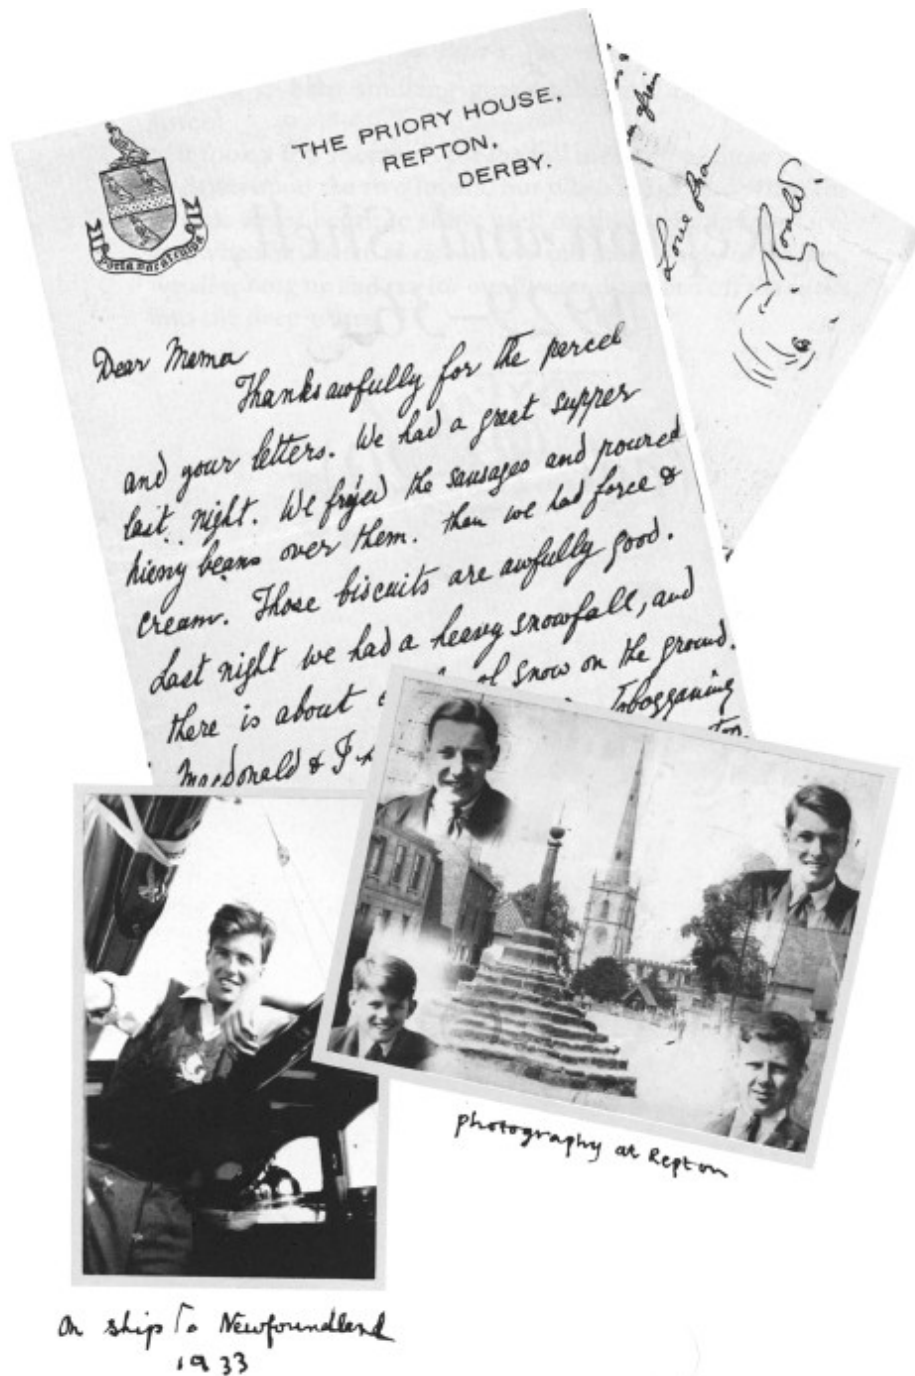 THE PRIORY HOUSE,
REPTON,
DERBY.
Porta Vacat Culpa
Dear Mama
Thanks awfully for the parcel
and your letters. We had a great supper
last night. We fryed the sausages and poured
hieny beans over them. then we had force &
cream. Those biscuits are awfully good.
Last night we had a heavy snowfall, and
there is about snow on the ground.
Macdonald & I tobogganing
Love from
Roald
photography at Repton
On ship to Newfoundland
1933